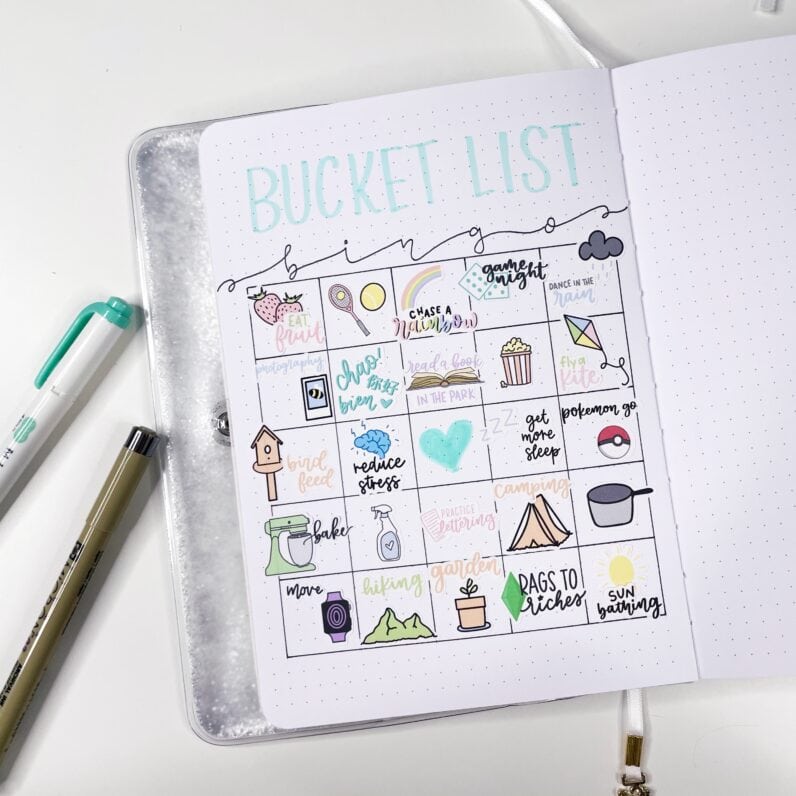 BUCKET LIST
bingo
EAT
fruit
CHASE A
rainbow
game
night
DANCE IN THE
rain
photography
chao!
你好
bien
read a book
IN THE PARK
fly a
kite
bird
feed
reduce
stress
zzz
get
more
sleep
pokemon go
bake
PRACTICE
lettering
camping
move
hiking
garden
RAGS TO
riches
SUN
bathing